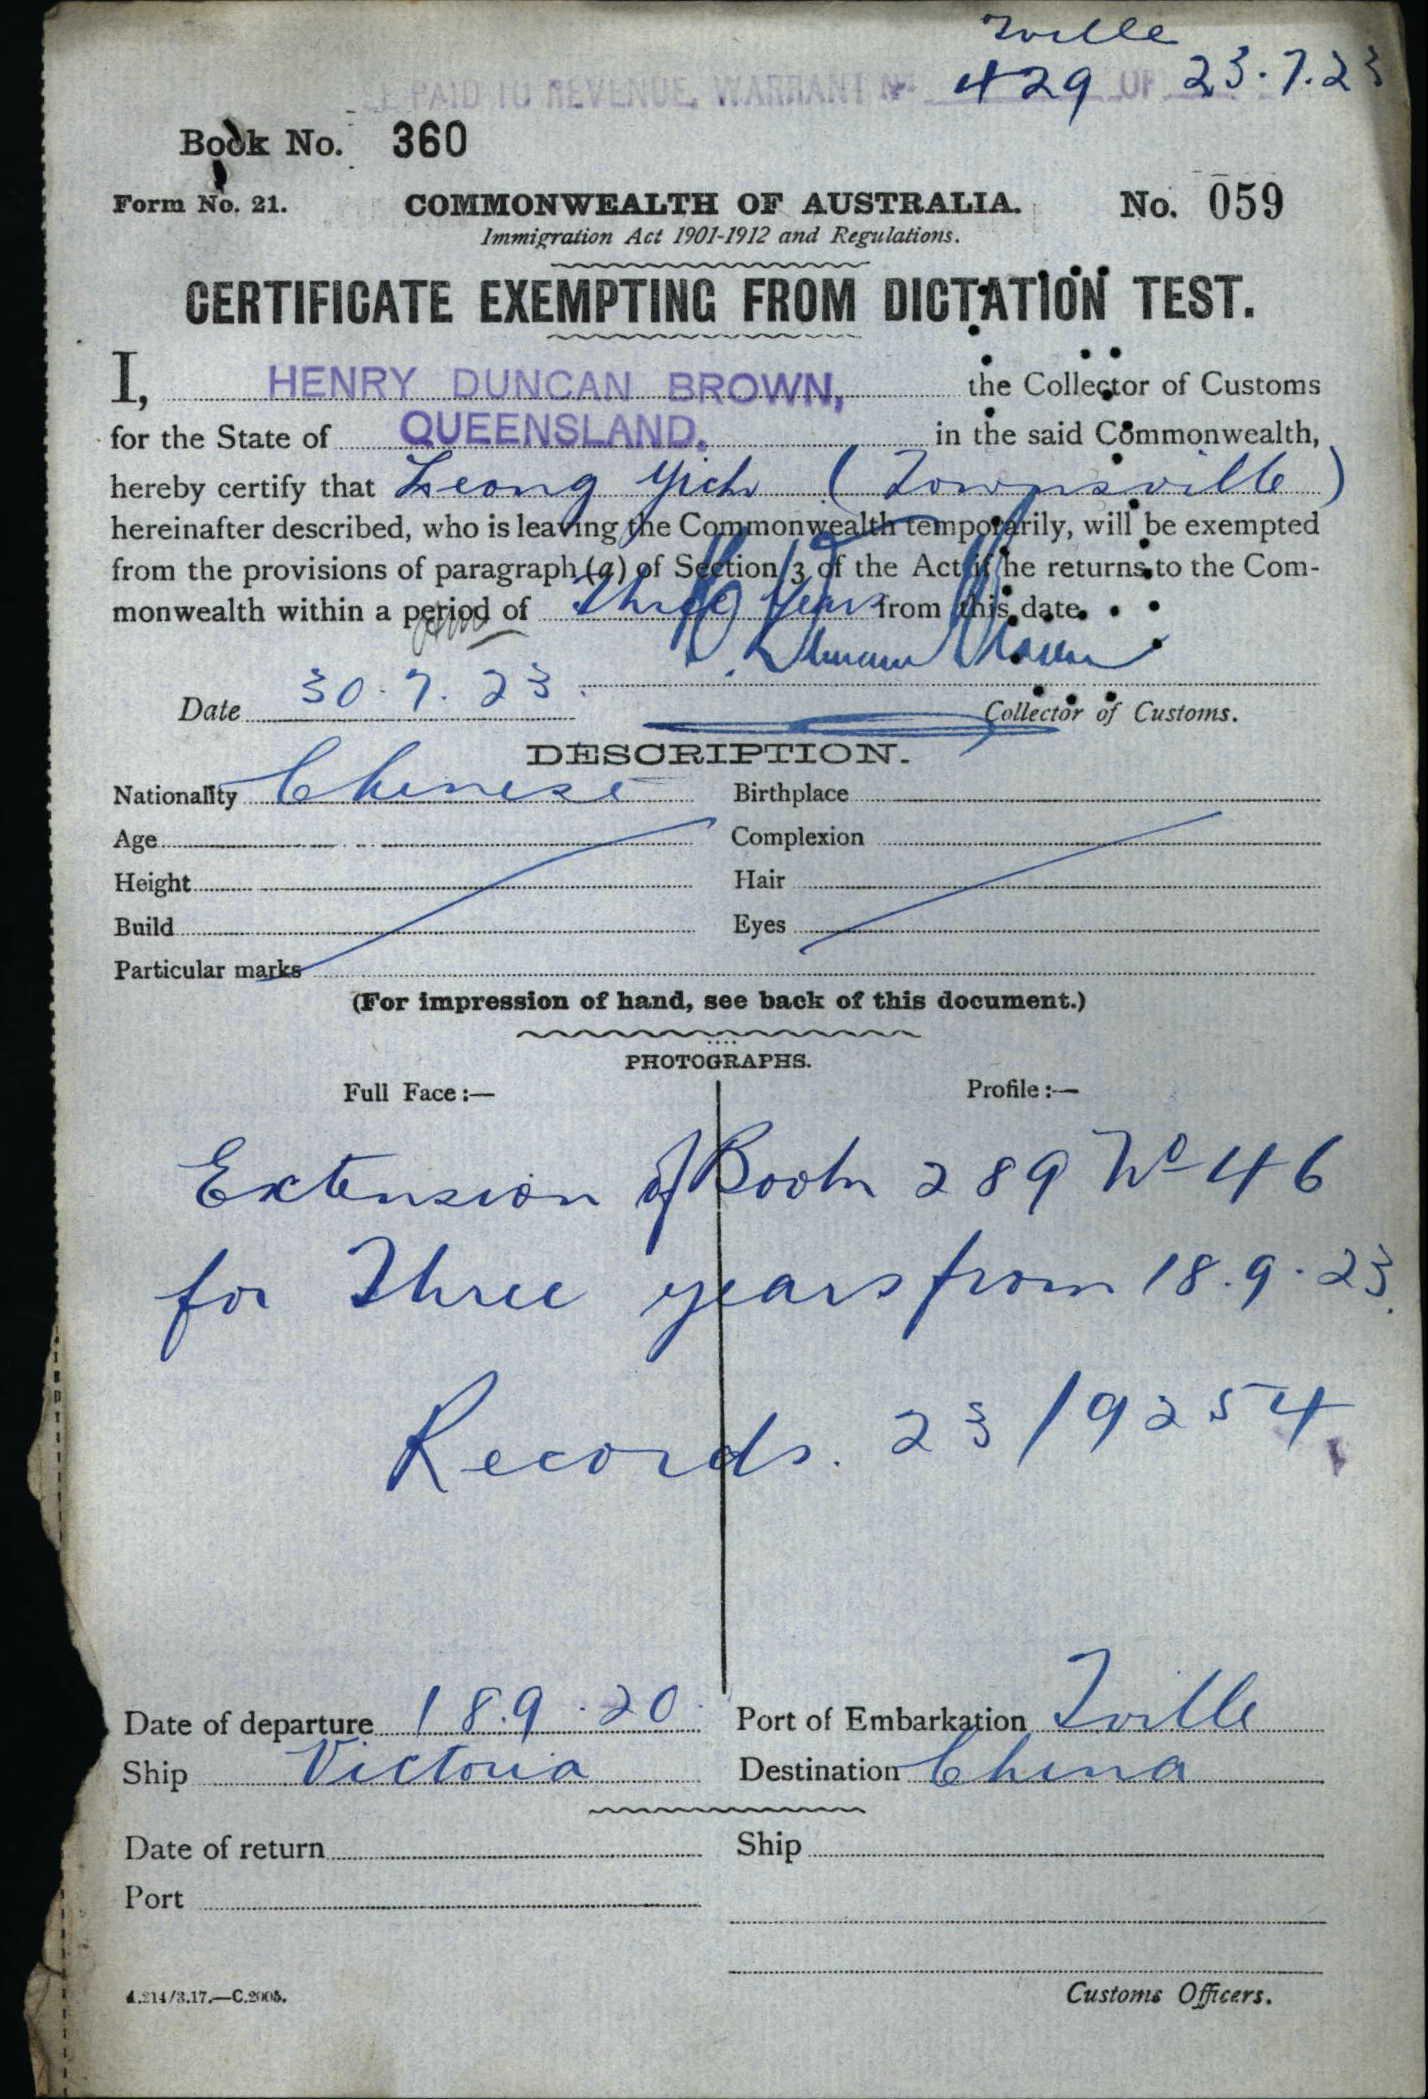 Tville
PAID TO REVENUE, WARRANT No. 429 OF 23.7.23
Book No. 360
Form No. 21. COMMONWEALTH OF AUSTRALIA. No. 059
Immigration Act 1901-1912 and Regulations.
CERTIFICATE EXEMPTING FROM DICTATION TEST.
I, HENRY DUNCAN BROWN, the Collector of Customs
for the State of QUEENSLAND. in the said Commonwealth,
hereby certify that Leong Yich (Townsville)
hereinafter described, who is leaving the Commonwealth temporarily, will be exempted
from the provisions of paragraph (a) of Section 3 of the Act if he returns to the Com-
monwealth within a period of Three Years from this date.
H Duncan Brown
Date 30.7.23. Collector of Customs.
DESCRIPTION.
Nationality Chinese Birthplace
Age Complexion
Height Hair
Build Eyes
Particular marks
(For impression of hand, see back of this document.)
PHOTOGRAPHS.
Full Face:— Profile:—
Extension of Book 289 No 46
for Three years from 18.9.23.
Records. 23/9254
Date of departure 18.9.20. Port of Embarkation Tville
Ship Victoria Destination China
Date of return Ship
Port
A.214/3.17.—C.2005. Customs Officers.